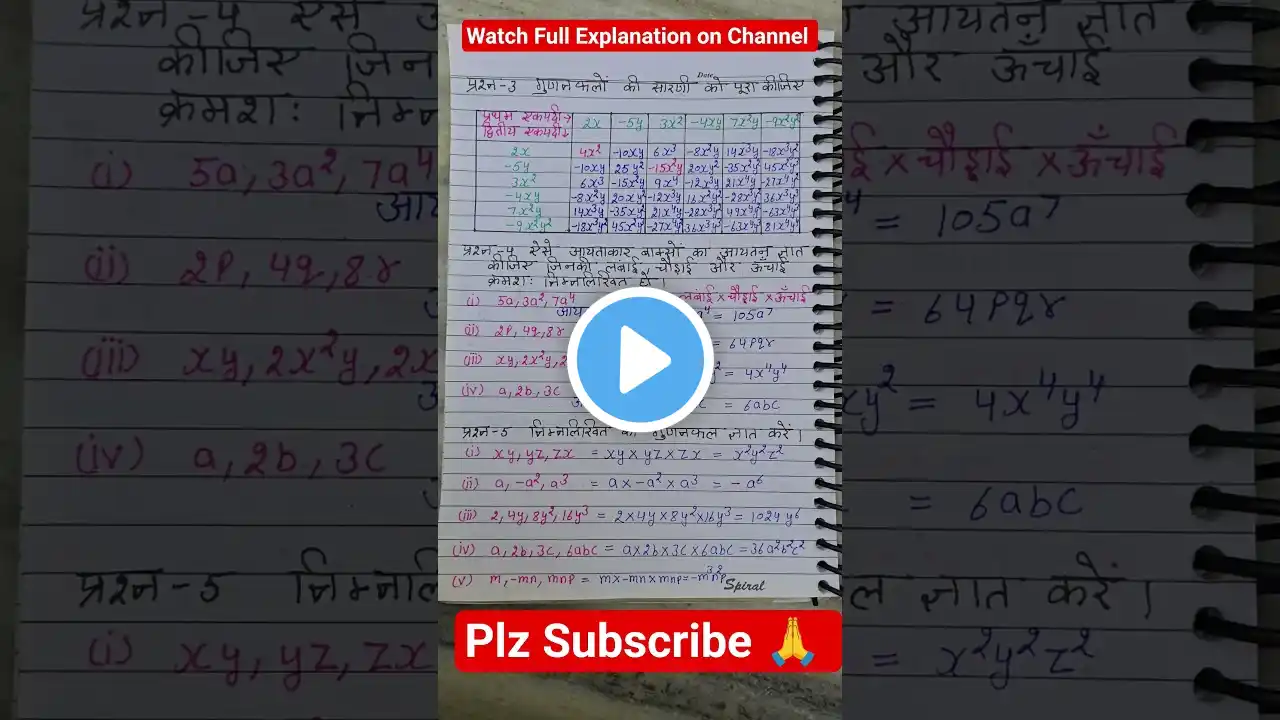 Watch Full Explanation on Channel
Date
प्रश्न-3 गुणनफलों की सारणी को पूरा कीजिए
प्रथम एकपदी→ 2x -5y 3x² -4xy 7x²y -9x²y²
द्वितीय एकपदी↓
2x 4x² -10xy 6x³ -8x²y 14x³y -18x³y²
-5y -10xy 25y² -15x²y 20xy² -35x²y² 45x²y³
3x² 6x³ -15x²y 9x⁴ -12x³y 21x⁴y -27x⁴y²
-4xy -8x²y 20xy² -12x³y 16x²y² -28x³y² 36x³y³
7x²y 14x³y -35x²y² 21x⁴y -28x³y² 49x⁴y² -63x⁴y³
-9x²y² -18x³y² 45x²y³ -27x⁴y² 36x³y³ -63x⁴y³ 81x⁴y⁴
प्रश्न-4 ऐसे आयताकार बाक्सों का आयतन ज्ञात
कीजिए जिनकी लंबाई, चौड़ाई और ऊँचाई
क्रमशः निम्नलिखित हों।
(i) 5a, 3a², 7a⁴ लंबाई × चौड़ाई × ऊँचाई
= 105a⁷
(ii) 2p, 4q, 8r
= 64pqr
(iii) xy, 2x²y,
= 4x⁴y⁴
(iv) a, 2b, 3c
= 6abc
प्रश्न-5 निम्नलिखित का गुणनफल ज्ञात करें।
(i) xy, yz, zx = xy × yz × zx = x²y²z²
(ii) a, -a², a³ = a × -a² × a³ = -a⁶
(iii) 2, 4y, 8y², 16y³ = 2×4y×8y²×16y³ = 1024y⁶
(iv) a, 2b, 3c, 6abc = a×2b×3c×6abc = 36a²b²c²
(v) m, -mn, mnp = m×-mn×mnp = -m³n²p
Spiral
Plz Subscribe 🙏